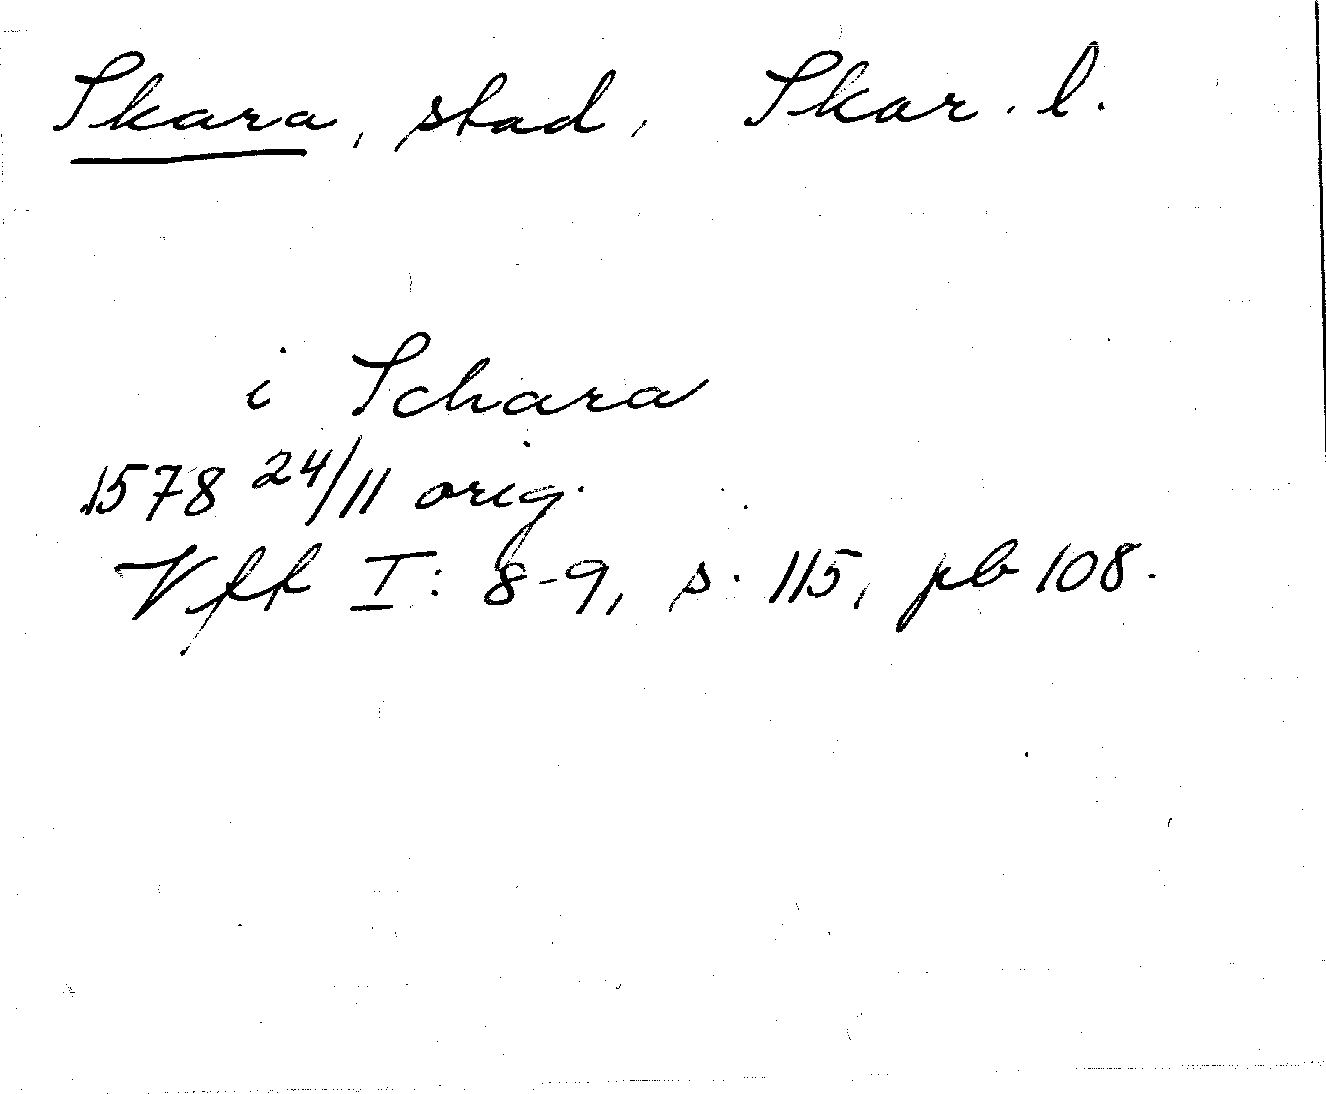 Skara, stad, Skar. l.
i Schara
1578 24/11 orig.
Vft I: 8-9, s. 115, pb 108.